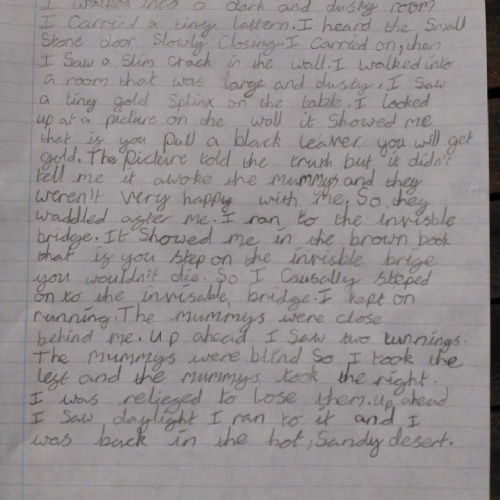 I walked into a dark and dusty room
I Carried a tiny lattern. I heard the Small
Stone door Slowly Closing. I Carried on, then
I Saw a Slim Crack in the wall. I walked into
a room that was large and dusty. I Saw
a tiny gold Sphinx on the table. I looked
up at a picture on the wall it Showed me
that if you pull a black leaver you will get
gold. The Picture told the truth but it didn't
tell me it awoke the mummys and they
weren't very happy with me. So they
waddled after me. I ran to the invisble
bridge. It Showed me in the brown book
that if you step on the invisible brige
you wouldn't die. So I Causally steped
on to the invisable bridge. I kept on
running. The mummys were close
behind me. Up ahead I Saw two tunnings.
The mummys were blind So I took the
left and the mummys took the right.
I was reliefed to lose them. Up ahead
I Saw daylight I ran to it and I
was back in the hot, Sandy desert.